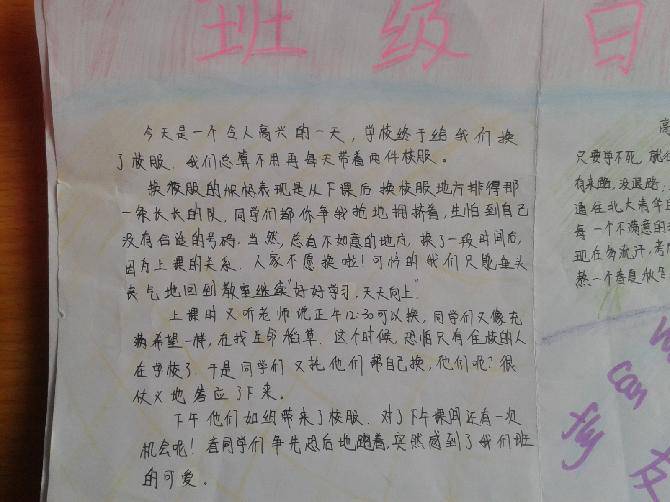 班级日
今天是一个令人高兴的一天，学校终于给我们换
了校服．我们总算不用再每天带着两件校服。
换校服的积极表现是从下课后换校服地方排得那
一条长长的队．同学们都你争我抢地拥挤着，生怕到自己
没有合适的号码，当然，总有不如意的地方，换了一段时间后，
因为上课的关系．人家不愿换啦！可怜的我们只能垂头
丧气地回到教室继续“好好学习，天天向上”
上课时又听老师说正午12:30可以换，同学们又像充
满希望一样，在找救命稻草．这个时候，恐怕只有住校的人
在学校了．于是同学们又托他们帮自己换，他们呢？很
仗义地答应了下来。
下午他们如约带来了校服．对了下午课间还有一次
机会呢！看同学们争先恐后地跑着，突然感到了我们班
的可爱。
高
只要学不死，就
有来路，没退路
通往北大清华
每一个不满意的
现在勿流汗，考
can
fly
友